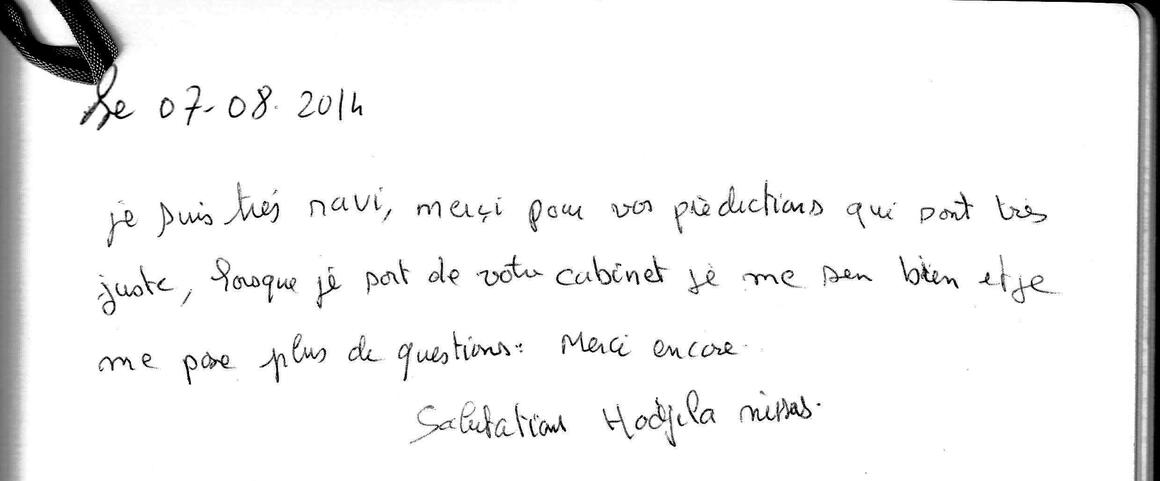 Le 07-08-2014
je suis très ravi, merçi pour vos prèdictions qui sont très
juste, lorsque jé sort de votre cabinet je me sen bien et je
me pose plus de questions. Merci encore.
Salutations Hodjila